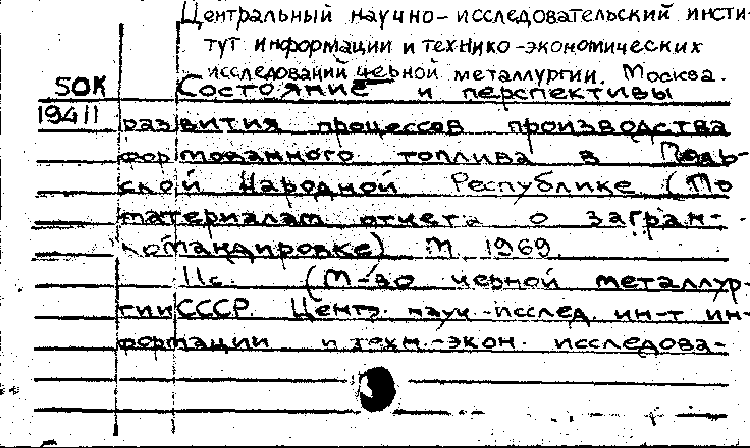 Центральный научно-исследовательский инсти-
тут информации и технико-экономических
исследований черной металлургии. Москва.
50К Состояние и перспективы
19411 развития процессов производства
формованного топлива в Поль-
ской Народной Республике (По
материалам отчета о загран-
командировке) М. 1969.
11с. (М-во черной металлур-
гии СССР. Центр. науч.-исслед. ин-т ин-
формации и техн.-экон. исследова-